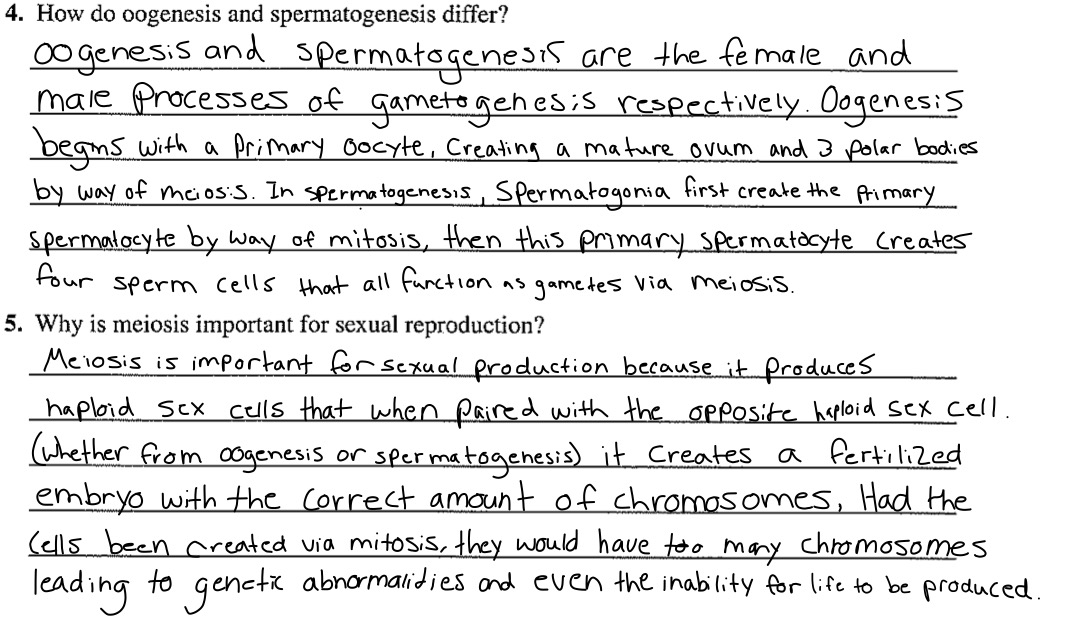 4. How do oogenesis and spermatogenesis differ?
oogenesis and spermatogenesis are the female and
male processes of gametogenesis respectively. Oogenesis
begins with a primary oocyte, creating a mature ovum and 3 polar bodies
by way of meiosis. In spermatogenesis, Spermatogonia first create the primary
spermatocyte by way of mitosis, then this primary spermatocyte creates
four sperm cells that all function as gametes via meiosis.
5. Why is meiosis important for sexual reproduction?
Meiosis is important for sexual production because it produces
haploid sex cells that when paired with the opposite haploid sex cell.
(whether from oogenesis or spermatogenesis) it creates a fertilized
embryo with the correct amount of chromosomes, Had the
cells been created via mitosis, they would have too many chromosomes
leading to genetic abnormalidies and even the inability for life to be produced.